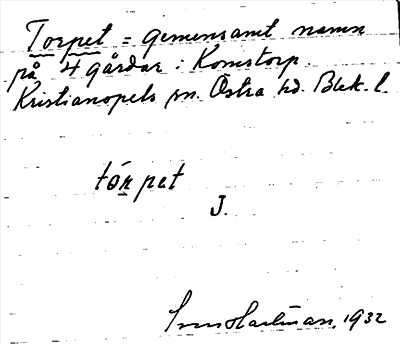 Torpet = gemensamt namn
på 4 gårdar i Komstorp.
Kristianopels sn. Östra hd. Blek. l.
tórpet
J.
Sven Hartman, 1932